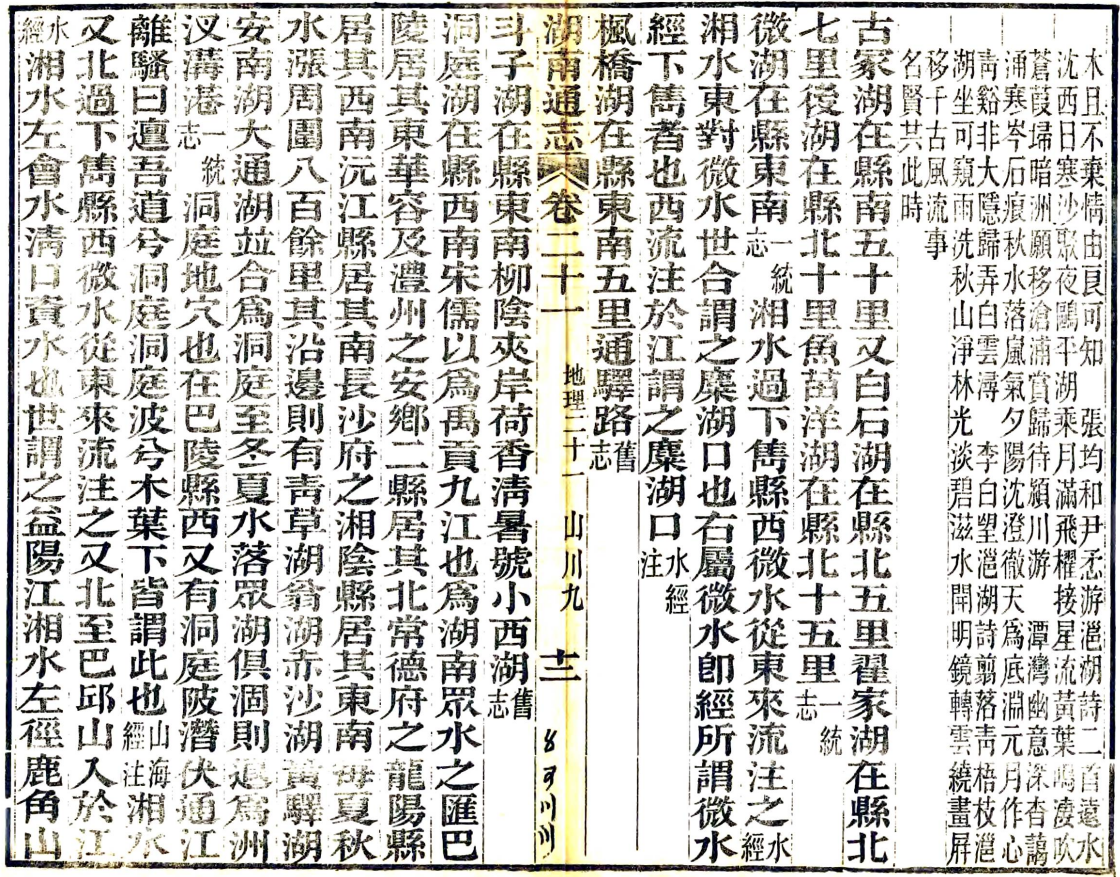 木且不棄情由良可知　張均和尹懋游㴩湖詩二首遠水
沈西日寒沙聚夜鷗平湖乘月滿飛櫂接星流黃葉鳴淒吹
蒼葭埽暗洲願移滄浦賞歸待潁川游　潭灣幽意深杳藹
涌寒岑石痕秋水落嵐氣夕陽沈澄徹天爲底淵元月作心
靑谿非大隱歸弄白雲潯　李白望㴩湖詩翦落靑梧枝㴩
湖坐可窺雨洗秋山淨林光淡碧滋水閒明鏡轉雲繞畫屛
移千古風流事
名賢共此時
古冢湖在縣南五十里又白石湖在縣北五里翟家湖在縣北
七里後湖在縣北十里魚苗洋湖在縣北十五里一統志
微湖在縣東南一統志湘水過下雋縣西微水從東來流注之水經
湘水東對微水世合謂之麋湖口也右屬微水卽經所謂微水
經下雋者也西流注於江謂之麋湖口水經注
楓橋湖在縣東南五里通驛路舊志
湖南通志　卷二十一　地理二十一　山川九　十二
斗子湖在縣東南柳陰夾岸荷香淸暑號小西湖舊志
洞庭湖在縣西南宋儒以爲禹貢九江也爲湖南眾水之匯巴
陵居其東華容及澧州之安鄉二縣居其北常德府之龍陽縣
居其西南沅江縣居其南長沙府之湘陰縣居其東南每夏秋
水漲周圍八百餘里其沿邊則有靑草湖翁湖赤沙湖黃驛湖
安南湖大通湖並合爲洞庭至冬夏水落眾湖俱涸則退爲洲
汊溝港一統志洞庭地穴也在巴陵縣西又有洞庭陂潛伏通江
離騷曰邅吾道兮洞庭洞庭波兮木葉下皆謂此也山海經注湘水
又北過下雋縣西微水從東來流注之又北至巴邱山入於江
水經湘水左會水淸口資水也世謂之益陽江湘水左徑鹿角山